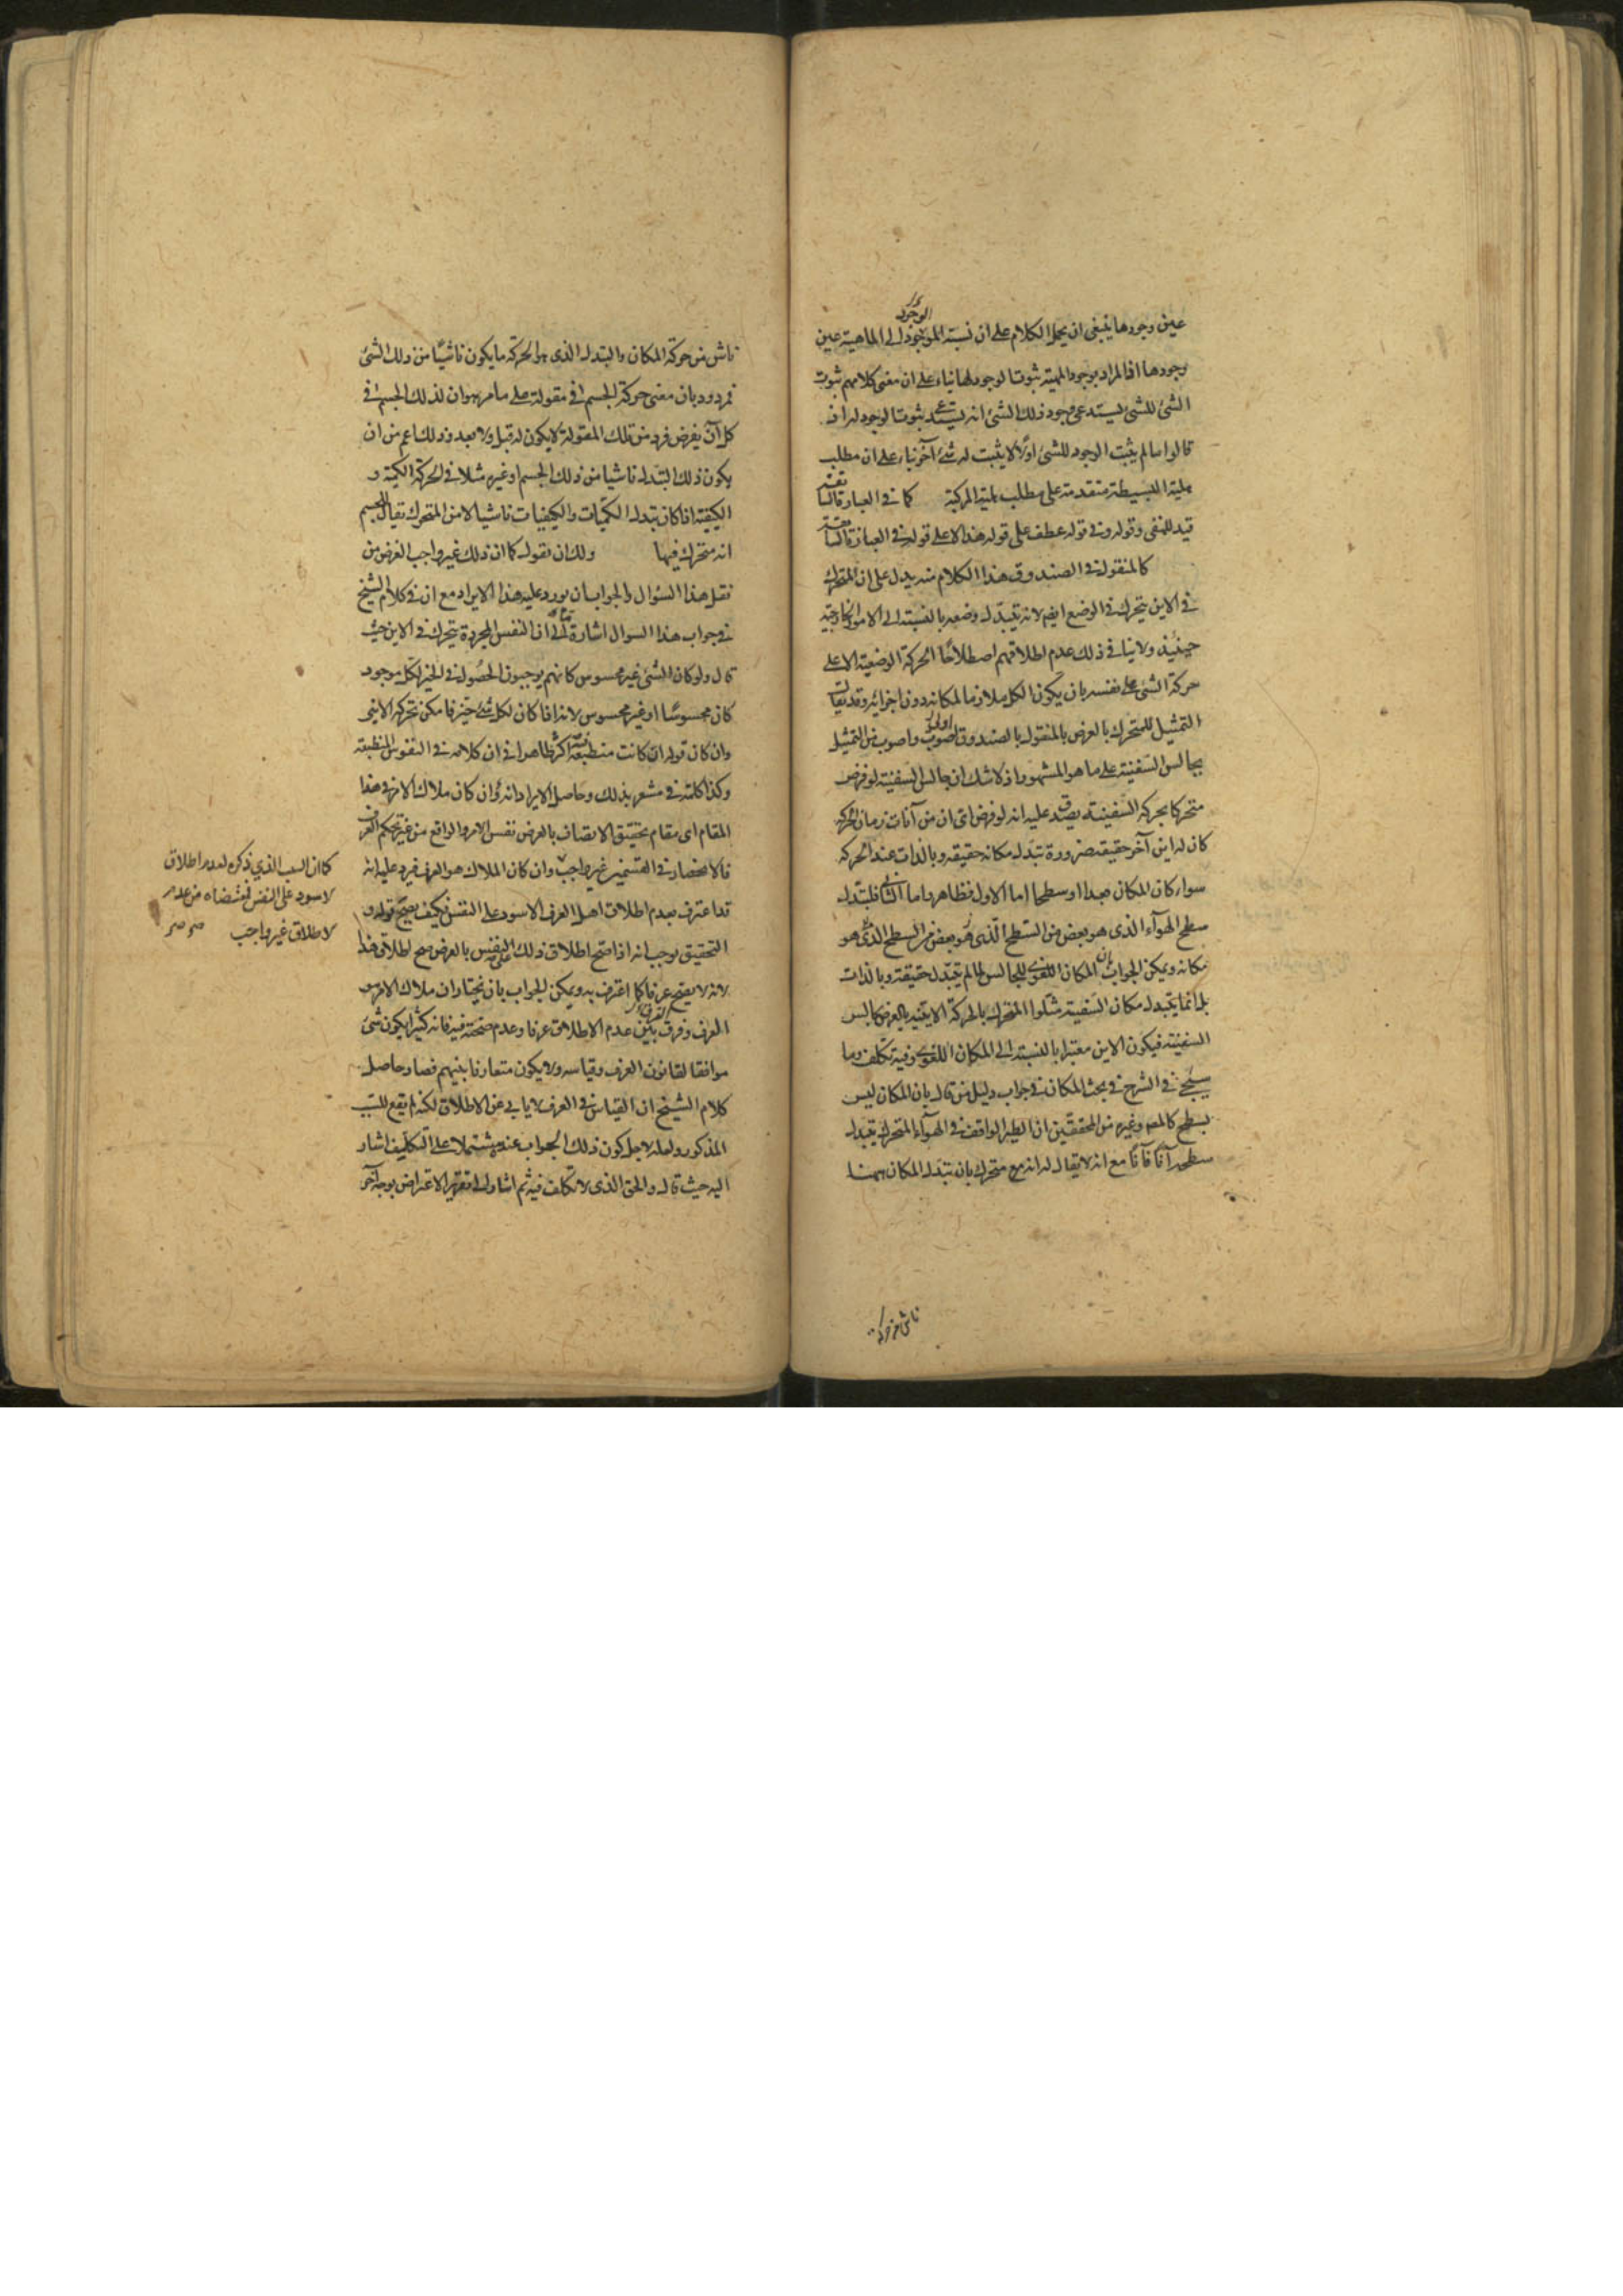 عين وجودها ينبغى ان يحمل الكلام على ان نسبة الوجود الى الماهية عين
وجودها اذ المراد بوجود المهية ثبوت الوجود لها بناء على ان معنى كلامهم ثبوت
الشئ للشئ يستدعى وجود ذلك الشئ انه يستدعى ثبوت الوجود له اذ
قالوا ما لم يثبت الوجود للشئ اولا لا يثبت له شئ آخر بناء على ان مطلب
هلية البسيطة متقدمة على مطلب هلية المركبة كما فى العبارة
قيد للنفى وقوله و فى قوله عطف على قوله هذا لا على قوله فى العبارة
كالمنقول فى الصندوق هذا الكلام منه يدل على ان المتحرك
فى الاين يتحرك فى الوضع ايضا لانه تتبدل وضعه بالنسبة الى الامور الخارجية
حينئذ ولا ينافى ذلك عدم اطلاقهم اصطلاحا الحركة الوضعية الا على
حركة الشئ على نفسه بان يكون الكل ملازما لمكانه دون اجزائه وقد يقال
التمثيل للمتحرك بالعرض بالمنقول بالصندوق اولى واصوب من التمثيل
بجالس السفينة على ما هو المشهور اذ لا شك ان جالس السفينة لو فرض
متحركا بحركة السفينة يصدق عليه انه لو فرض اى ان من آنات زمان الحركة
كان له اين آخر حقيقة ضرورة تبدل مكانه حقيقة وبالذات عند الحركة
سواء كان المكان بعدا او سطحا اما الاول فظاهر واما الثانى فلتبدل
سطح الهوآء الذى هو بعض من السطح الذى هو بعض من السطح الذى هو
مكانه ويمكن الجواب بان المكان اللغوى للجالس لما لم يتبدل حقيقة وبالذات
بل انما يتبدل مكان السفينة مثلوا المتحرك بالحركة الاينية بالعرض بجالس
السفينة فيكون الاين معتبرا بالنسبة الى المكان اللغوى وفيه تكلف وما
سيجئ فى الشرح فى بحث المكان فى جواب دليل من قال بان المكان ليس
بسطح كالمص وغيره من المحققين ان الطير الواقف فى الهوآء المتحرك يتبدل
سطحه آنا فآنا مع انه لا يقال له انه متحرك بان تبدل المكان ههنا
ناش من حركة
ناش من حركة المكان والتبدل الذى هو الحركة ما يكون ناشيا من ذلك الشئ
فمردود بان معنى حركة الجسم فى مقولة على ما مر هو ان لذلك الجسم فى
كل آن يفرض فرد من تلك المقولة لا يكون له قبل ولا بعد وذلك اعم من ان
يكون ذلك التبدل ناشيا من ذلك الجسم او غيره مثلا فى الحركة الكمية و
الكيفية اذا كان تبدل الكميات والكيفيات ناشيا لا من المتحرك يقال للجسم
انه متحرك فيها ولك ان تقول كما ان ذلك غير واجب الغرض من
نقل هذا السؤال والجواب ان يورد عليه هذا الايراد مع ان فى كلام الشيخ
فى جواب هذا السؤال اشارة الى ان النفس المجردة يتحرك فى الاين حيث
قال ولو كان الشئ غير محسوس كانهم يوجبون الحصول فى الحيز لكل موجود
كان محسوسا او غير محسوس لانه اذا كان لكل شئ حيز فامكن تحركه الاينى
وان كان قوله ان كانت منطبعة ظاهرا فى ان كلامه فى النفوس المنطبعة
وكذا كلمة فى مشعر بذلك وحاصل الايراد انه وان كان ملاك الامر فى هذا
المقام اى مقام تحقيق الاتصاف بالعرض نفس الامر والواقع من غير تحكم العرف
فالانحصار فى القسمين غير واجب وان كان الملاك هو العرف فيرد عليه انه
قد اعترف بعدم اطلاق اهل العرف الاسود على النفس فكيف يصح قوله و
التحقيق يوجب انه اذا صح اطلاق ذلك على النفس بالعرض صح اطلاق هذا
لانه لا يصح عرفا كما اعترف به ويمكن الجواب بان نختار ان ملاك الامر هو
العرف وفرق بين عدم الاطلاق عرفا وعدم صحته فيه فانه كثيرا يكون شئ
موافقا لقانون العرف وقياسه ولا يكون متعارفا بينهم فصار حاصل
كلام الشيخ ان القياس فى العرف لا يابى عن الاطلاق لكنه لم يقع للسبب
المذكور ولعله لاجل كون ذلك الجواب عنده مشتملا على التكليف اشار
اليه حيث قال والحق الذى لا تكلف فيه ثم اشار الى تقرير الاعتراض بوجه آخر
كما ان السبب الذي ذكره لعدم اطلاق
لاسود على النفس فمقتضاه من عدم
لاطلاق غير واجب صح صح